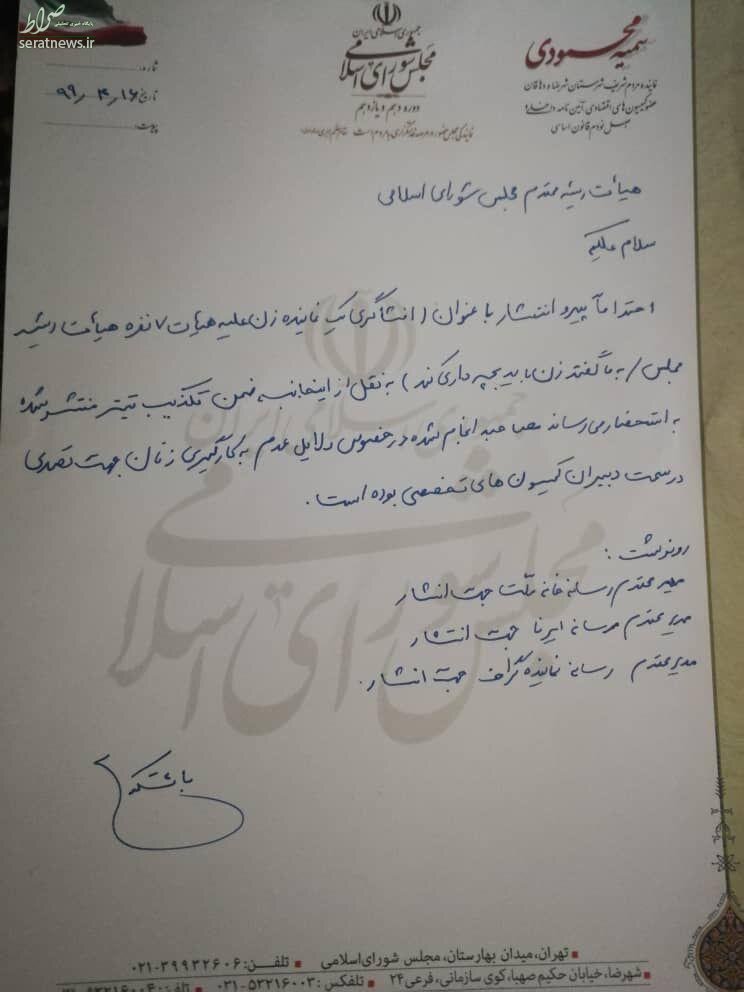 صراط
پایگاه خبری تحلیلی
seratnews.ir
جمهوری اسلامی ایران
مجلس شورای اسلامی
دوره دهم و یازدهم
سمیه محمودی
نماینده مردم شریف شهرستان شهرضا و دهاقان
عضو کمیسیون های اقتصادی، آئین نامه داخلی و
اصل نودم قانون اساسی
شماره:
تاریخ: ۹۹٫۴٫۱۶
پیوست:
هیأت رئیسه محترم مجلس شورای اسلامی
سلام علیکم
احتراماً پیرو انتشار با عنوان (افشاگری یک نماینده زن علیه هیأت ۷ نفره هیأت رئیسه
مجلس / به ما گفتند زن باید بچه داری کند) به نقل از اینجانبه ضمن تکذیب تیتر منتشر شده
به استحضار می رساند مصاحبه انجام شده در خصوص دلایل عدم به کارگیری زنان جهت تصدی
در سمت دبیران کمیسیون های تخصصی بوده است.
رونوشت:
مدیر محترم رسانه خانه ملت جهت انتشار
مدیر محترم رسانه ایرنا جهت انتشار
مدیر محترم رسانه نماینده گراف جهت انتشار.
با تشکر
جمهوری اسلامی ایران
مجلس شورای اسلامی
تهران، میدان بهارستان، مجلس شورای اسلامی ▪ تلفن: ۳۹۹۳۲۶۰۶-۰۲۱
شهرضا، خیابان حکیم صهبا، کوی سازمانی، فرعی ۲۴ ▪ تلفکس: ۵۳۲۱۶۰۰۳-۰۲۱ ▪ تلفن: ۵۳۲۱۶۰۰۴